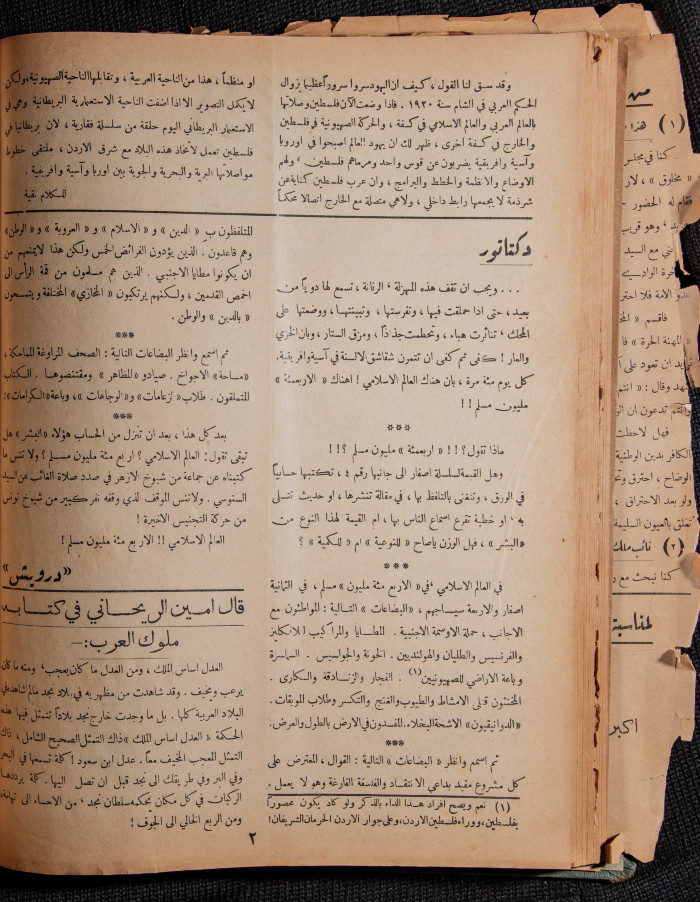 وقد سبق لنا القول، كيف ان اليهود سروا سروراً عظيماً بزوال
الحكم العربي في الشام سنة ١٩٢٠. فاذا وضعت الآن فلسطين وصلاتها
بالعالم العربي والعالم الاسلامي في كفة، والحركة الصهيونية في فلسطين
والخارج في كفة اخرى، ظهر لك ان يهود العالم اصبحوا في اوروبا
وآسية وافريقية يضربون عن قوس واحد ومرماهم فلسطين. ولهم
الاوضاع والانظمة والخطط والبرامج، وان عرب فلسطين كناية عن
شرذمة لا يجمعها رابط داخلي، ولا هي متصلة مع الخارج اتصالا محكماً
او منظماً، هذا من الناحية العربية، وتقابلها الناحية الصهيونية، ولكن
لا يكمل التصوير الا اذا اضفت الناحية الاستعمارية البريطانية وهي في
الاستعمار البريطاني اليوم حلقة من سلسلة فقارية، لان بريطانيا في
فلسطين تعمل لاتخاذ هذه البلاد مع شرق الاردن، ملتقى خطوط
مواصلاتها البرية والبحرية والجوية بين اوربا وآسية وافريقية.
للكلام بقية
دكتاتور
... ويجب ان تقف هذه المهزلة، الرنانة، تسمع لها دوياً من
بعيد، حتى اذا حملقت فيها، وتفرستها، وتبينتها، ووضعتها على
المحك، تناثرت هباء، وتحطمت جذاذاً، ومزق الستار، وبان الخزي
والعار! كفى ثم كفى ان تتمرن شقاشق الالسنة في آسية وافريقية.
كل يوم مئة مرة، بان هناك العالم الاسلامي! اهناك « الاربعمئة »
مليون مسلم!!
***
ماذا تقول؟!! « اربعمئة » مليون مسلم؟!!
وهل القيمة لسلسلة اصفار الى جانبها رقم ٤، تكتبها حسابياً
في الورق، وتتغنى بالتلفظ بها، في مقالة تنشرها، او حديث تتسلى
به، او خطبة تقرع اسماع الناس بها، ام القيمة لهذا النوع من
« البشر »، فهل الوزن ياصاح « للنوعية » ام « للكمية »؟
***
في العالم الاسلامي، في « الاربع مئة مليون » مسلم، في الثمانية
اصفار والاربعة سياجهم، « البضاعات » التالية: المواطئون مع
الاجانب، حملة الاوسمة الاجنبية. المطايا والمراكيب للانكليز
والفرنسيس والطليان والهولنديين. الخونة والجواسيس. السماسرة
وباعة الاراضي للصهيونيين (١). الفجار والزنادقة والسكارى.
المخنثون قتلى الامشاط والطيوب والغنج والتكسر وطلاب الموبقات.
« الدوانيقيون » الاشحة البخلاء. المفسدون في الارض بالطول والعرض.
***
ثم اسمع وانظر « البضاعات » التالية: القوال، المعترض على
كل مشروع مفيد بداعي الانتقاد والفلسفة الفارغة وهو لا يعمل.
(١) نعم ويصح افراد هذا الداء بالذكر ولو كاد يكون محصوراً
بفلسطين، ووراء فلسطين الاردن، وعلى جوار الاردن الحرمان الشريفان!
المتلفظون بـ « الدين » و « الاسلام » و « العروبة » و « الوطن »
وهم قاعدون. الذين يؤدون الفرائض الخمس ولكن هذا لا يمنعهم من
ان يكونوا مطايا الاجنبي. الذين هم مسلمون من قمة الرأس الى
اخمص القدمين، ولكنهم يرتكبون « المخازي » المختلفة ويتمسحون
« بالدين » والوطن.
***
ثم اسمع وانظر البضاعات التالية: الصحف المراوغة المماحكة،
« مساحة » الاجواخ. صيادو « المظاهر » ومقتنصوها. الكتاب
المتملقون. طلاب « الزعامات » و « الوجاهات »، وباعة « الكرامات »!
***
بعد كل هذا، بعد ان تنزل من الحساب هؤلاء « البشر » هل
تبقى تقول: العالم الاسلامي؟ اربع مئة مليون مسلم؟ ولا تنس ما
كتبناه عن جماعة من شيوخ الازهر في صدد صلاة الغائب عن السيد
السنوسي. ولا تنس الموقف الذي وقفه نفر كبير من شيوخ تونس
من حركة التجنيس الاخيرة!
العالم الاسلامي!! الاربع مئة مليون مسلم!
« درويش »
قال امين الريحاني في كتابه
ملوك العرب:—
العدل اساس الملك، ومن العدل ما كان يعجب، ومنه ما كان
يرعب ويخيف. وقد شاهدت من مظهريه في بلاد نجد مالم اشاهده في
البلاد العربية كلها. بل ما وجدت خارج نجد بلاداً تتمثل فيها هذه
الحكمة « العدل اساس الملك » ذاك التمثل الصحيح الشامل، ذاك
التمثل المعجب المخيف معاً. عدل ابن سعود! كلمة تسمعها في البحر
وفي البر وفي طريقك الى نجد قبل ان تصل اليها. كلمة يرددها
الركبان في كل مكان يحكمه سلطان نجد، من الاحساء الى تهامة،
ومن الربع الخالي الى الجوف!
٢
(١) هذا
كنا في مجلس
« مخلوق »، لا
فقام له الحضور
مع السيد
فاقسم « المح
« المهنة الحرة » فا
ان تعود على
وقال: « انتم
تدعون ان
فهل لاحظت
الكافر بدين الوطنية
الوضاح، احترق
ولو بعد الاحتراق،
تتعلق بالعيون السليمة
(٢) نائب ملك
كنا نبحث مع
لمناسبة